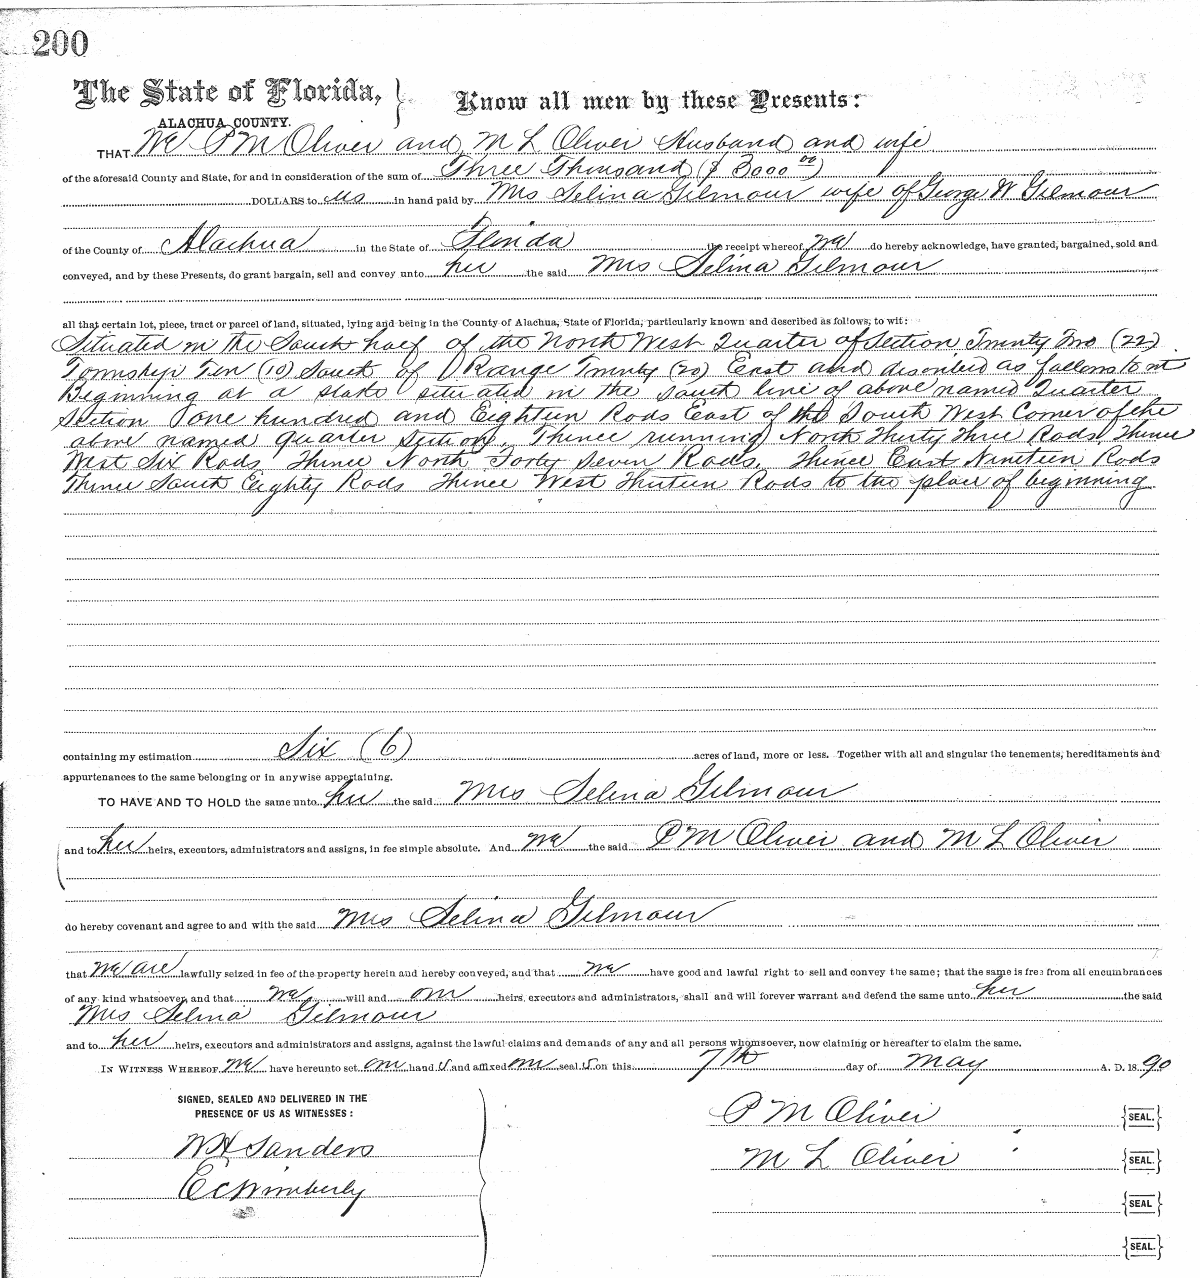 200
The State of Florida, } Know all men by these Presents:
ALACHUA COUNTY.
THAT We P M Oliver and M L Oliver Husband and wife
of the aforesaid County and State, for and in consideration of the sum of Three Thousand ($3000 00)
DOLLARS to us in hand paid by Mrs Selina Gilmour wife of George W Gilmour
of the County of Alachua in the State of Florida the receipt whereof we do hereby acknowledge, have granted, bargained, sold and
conveyed, and by these Presents, do grant bargain, sell and convey unto her the said Mrs Selina Gilmour
all that certain lot, piece, tract or parcel of land, situated, lying and being in the County of Alachua, State of Florida, particularly known and described as follows, to wit:
Situated in the South half of the North West Quarter of Section Twenty Two (22)
Township Ten (10) South of Range Twenty (20) East and described as follows to wit
Beginning at a stake situated in the south line of above named Quarter
Section one hundred and Eighteen Rods East of the South West Corner of the
above named quarter section, Thence running North Thirty Three Rods Thence
West Six Rods Thence North Forty Seven Rods, Thence East Nineteen Rods
Thence South Eighty Rods Thence West Thirteen Rods to the place of beginning
containing my estimation Six (6) acres of land, more or less. Together with all and singular the tenements, hereditaments and
appurtenances to the same belonging or in anywise appertaining.
TO HAVE AND TO HOLD the same unto her the said Mrs Selina Gilmour
and to her heirs, executors, administrators and assigns, in fee simple absolute. And we the said P M Oliver and M L Oliver
do hereby covenant and agree to and with the said Mrs Selina Gilmour
that we are lawfully seized in fee of the property herein and hereby conveyed, and that we have good and lawful right to sell and convey the same; that the same is free from all encumbrances
of any kind whatsoever, and that we will and our heirs, executors and administrators, shall and will forever warrant and defend the same unto her the said
Mrs Selina Gilmour
and to her heirs, executors and administrators and assigns, against the lawful claims and demands of any and all persons whomsoever, now claiming or hereafter to claim the same.
IN WITNESS WHEREOF we have hereunto set our hand s and affixed our seal s on this 7th day of May A. D. 1890
SIGNED, SEALED AND DELIVERED IN THE
PRESENCE OF US AS WITNESSES:
P M Oliver {SEAL.}
W H Sanders
M L Oliver {SEAL.}
E C Wimberly
{SEAL}
{SEAL.}